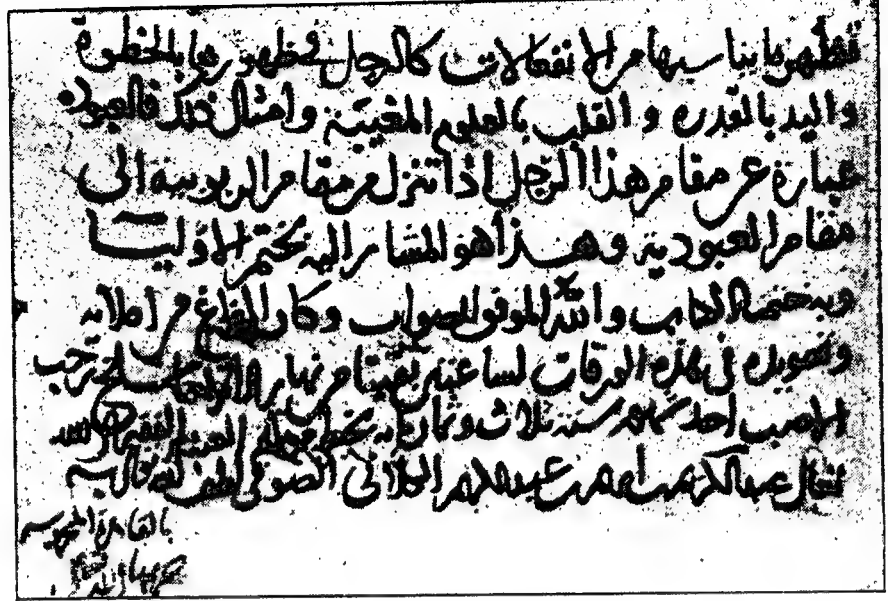 فظهر ما يناسبها من الانفعالات كالرجل وظهورها بالخطوة
واليد بالقدره والقلب بالعلوم المغيبة وامثال ذلك فالعبودة
عبارة عن مقام هذا الرجل اذا تنزل من مقام الربوبية الى
مقام العبودية وهذا هو المشار اليه بختم الاوليا
وبه ختم الكتاب والله الموفق للصواب وكان الفراغ من املائه
وتحويله فى هذه الورقات لساعتين بقيتا من نهار سلخ رجب
الاصب احد شهور سنة ثلاث وثمانمايه بخط ممليه العبد الفقير الى الله
تعالى عبدالكريم بن ابراهيم بن عبدالكريم الكيلانى الصوفى لطف الله تعالى به
بالقاهرة المحروسة